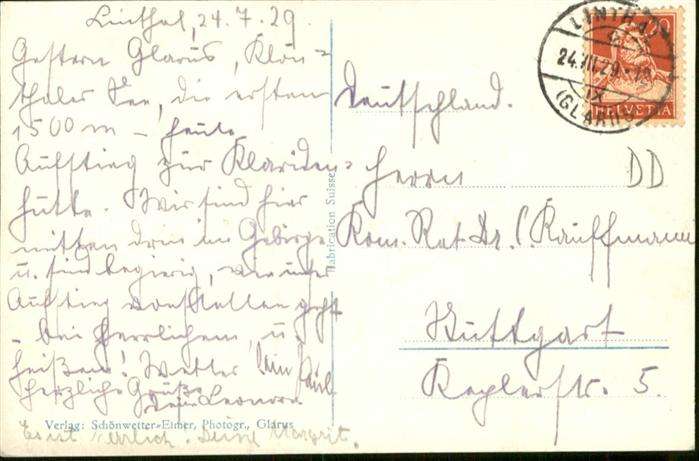 Linthal, 24.7.29.
Gestern Glarus, Klön=
thaler See, die ersten
1500 m – heute
Aufstieg zur Klariden=
hütte. Wir sind hier
mitten drin im Gebirge
u. sind begierig, wie unser
Aufstieg vonstatten geht
– bei herrlichem, u.
heißem! Wetter Paul.
herzliche Grüße
Dein
Ernst Deine Margrit.
Verlag: Schönwetter-Elmer, Photogr., Glarus
Fabrication Suisse
LINTHAL
24.VII.29
IX
(GLARUS)
20
HELVETIA
Deutschland.
Herrn DD
Kom. Rat Dr. C. Kauffmann
Stuttgart
Keplerstr. 5.